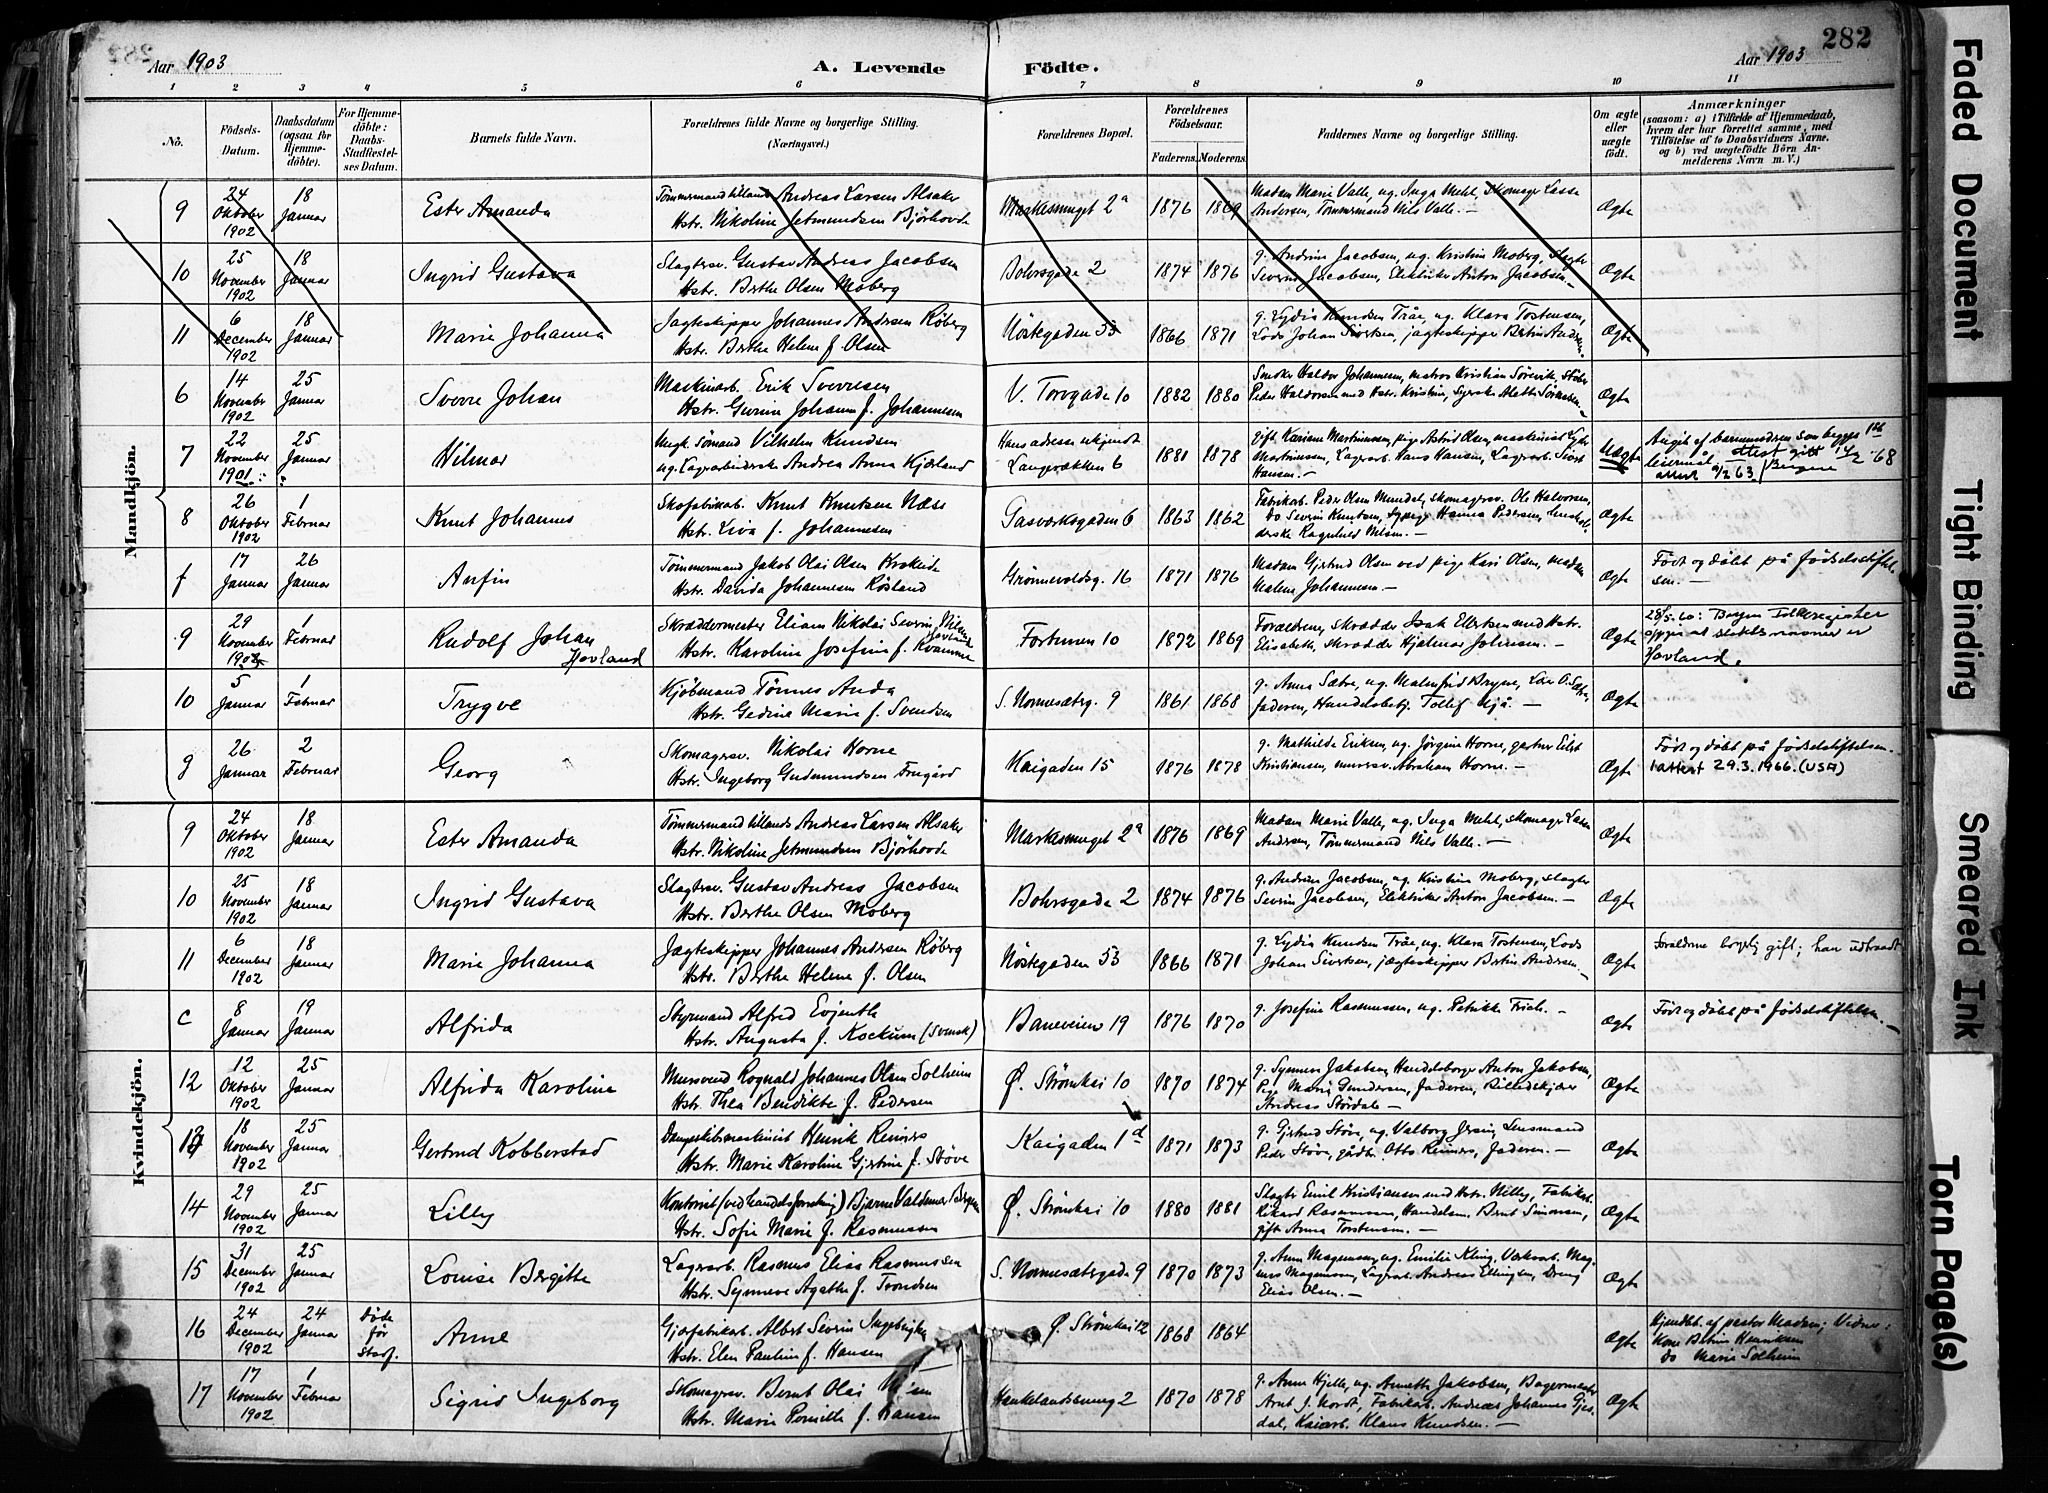 282
Aar 1903
A. Levende Födte.
Aar 1903
1 2 3 4 5 6 7 8 9 10 11
No.
Födsels-Datum.
Daabsdatum (ogsaa for Hjemme-döbte).
For Hjemme-döbte: Daabs-Stadfæstel-ses Datum.
Barnets fulde Navn.
Forældrenes fulde Navne og borgerlige Stilling.
(Næringsvei.)
Forældrenes Bopæl.
Forældrenes Födselsaar.
Faderens. Moderens.
Faddernes Navne og borgerlige Stilling.
Om ægte eller uægte födt.
Anmærkninger
(saasom: a) i Tilfælde af Hjemmedaab, hvem der har forrettet samme, med Tilföielse af to Daabsvidners Navne. og b) ved uægtefödte Börn An-melderens Navn m. V.)
Mandkjön.
9 24 Oktober 1902 18 Januar Ester Amanda Tömmermand Andreas Larsen Alsaker
Hstr. Nikoline Jetmundsen Björhovde Markesmuget 2a 1876 1869 Madam Marie Valle, ug. Inga Mehl, Skomager Lasse
Andersen, Tömmermand Nils Valle. — Ægte
10 25 November 1902 18 Januar Ingrid Gustava Slagtersv. Gustav Andreas Jacobsen
Hstr. Berthe Olsen Moberg Bohrsgade 2 1874 1876 g. Andrine Jacobsen, ug. Kristine Moberg, Slagter
Severin Jacobsen, Elektriker Anton Jacobsen. — Ægte
11 6 December 1902 18 Januar Marie Johanna Jagteskipper Johannes Andersen Röberg
Hstr. Berthe Helene f. Olsen Nöstegaden 53 1866 1871 g. Lydia Knudsen Träe, ug. Klara Tostensen,
Lods Johan Sivertsen, jagteskipper Bertin Andersen. Ægte
6 14 November 1902 25 Januar Sverre Johan Maskinarb. Erik Sverresen
Hstr. Gurine Johanne f. Johannesen V. Torvgade 10 1882 1880 Ægte
7 22 November 1901 25 Januar Hilmar Ungk. Sömand Vilhelm Knudsen
ug. Andrea Anna Kjærland Hans adresse ukjendt
Langerækken 6 1881 1878 gift Kariane Martinussen, pige Astrid Olsen,
Martinussen, Lagerarb. Hans Hansen, Lagerarb. Sivert
Hansen. — Uægte
8 26 Oktober 1902 1 Februar Knut Johannes Skofabrikarb. Knut Knutsen Næss
Hstr. Liva f. Johannesen Gasværksgaden 6 1863 1862 Fabrikarb. Peder Olsen Mundal, skomagersv. Ole Halvorsen,
do Severin Knutsen, Hanna Pedersen,
Ragnhild Nilsen. — Ægte
f 17 Januar 26 Januar Arfin Tömmermand Jakob Olai Olsen
Hstr. Davida Johannesen Rösland Grönnevoldsg. 16 1871 1876 Madam Gjertrud Olsen ved pige Kari Olsen, madam
Malene Johannesen. — Ægte Födt og döbt på Födselsstiftel
sen. —
9 29 November 1902 1 Februar Rudolf Johan
Hovland Skræddermester Eliam Nikolai Severin Nilsen
Hovland
Hstr. Karoline Josefine f. Kvamme Fortunen 10 1872 1869 Forældrene, skrædder Isak Ellertsen med Hstr.
Elisabeth, skrædder Hjalmar Johnsen. — Ægte 28/5.60: Bergen Folkeregister
oppgir at slektsnavnet er
Hovland.
10 5 Januar 1 Februar Trygve Kjöbmand Tönnes Anda
Hstr. Gedine Marie f. Svendsen S. Normesætsg. 9 1861 1868 g. Anna Sætre, ug. Malmfrid Bryne, Lars O. Sætre,
Faderen, Handelsbetj. Tollef — Ægte
g 26 Januar 2 Februar Georg Skomagersv. Nikolai Horne
Hstr. Ingeborg Gudmundsen Kaigaden 15 1876 1878 g. Mathilde Eriksen, ug. Jörgine Horne, gartner
Kristiansen, murersv. Abraham Horne. — Ægte Födt og döbt på Födselsstiftelsen.
1 attest 29.3.1966. (USA)
Kvindekjön.
9 24 Oktober 1902 18 Januar Ester Amanda Tömmermand Andreas Larsen Alsaker
Hstr. Nikoline Jetmundsen Björhovde Markesmuget 2a 1876 1869 Madam Marie Valle, ug. Inga Mehl, skomager Lasse
Andersen, Tömmermand Nils Valle. — Ægte
10 25 November 1902 18 Januar Ingrid Gustava Slagtersv. Gustav Andreas Jacobsen
Hstr. Berthe Olsen Moberg Bohrsgade 2 1874 1876 g. Andrine Jacobsen, ug. Kristine Moberg, slagter
Severin Jacobsen, Elektriker Anton Jacobsen. — Ægte
11 6 December 1902 18 Januar Marie Johanna Jægteskipper Johannes Andersen Röberg
Hstr. Berthe Helene f. Olsen Nöstegaden 53 1866 1871 g. Lydia Knudsen Träe, ug. Klara Tostensen, Lods
Johan Sivertsen, jægteskipper Bertin Andersen. — Ægte Forældrene borgelig gift; han
c 8 Januar 19 Januar Alfrida Styrmand Alfred Evjenth
Hstr. Augusta f. Kockum (Svensk) Baneveien 19 1876 1870 g. Josefine Rasmussen, ug. Petrikke Friele. — Ægte Födt og döbt på Födselsstiftelsen. —
12 12 Oktober 1902 25 Januar Alfrida Karoline Mursvend Rognald Johannes Olsen Solheim
Hstr. Thea Benedikte f. Pedersen Ø. Strömkai 10 1870 1874 g. Synneve Jakobsen, Handelsborger Anton Jakobsen,
Pige Marie Gundersen, Faderen, Billedskjærer
Andreas Stördal. — Ægte
13 18 November 1902 25 Januar Gertrud Kobberstad Dampskibsmaskinist Henrik Reimers
Hstr. Marie Karoline Gjertine f. Störe Kaigaden 1d 1871 1873 g. Gjertrud Störe, ug. Valborg Jersin, Lensmand
Peder Störe, gårdbr. Otto Reimers, Faderen. — Ægte
14 29 November 1902 25 Januar Lilly Kontorist (ved handelsforretning) Bjarne Valdemar
Hstr. Sofie Marie f. Rasmussen Ø. Strömkai 10 1880 1881 Slagter Emil Kristiansen med Hstr. Milly, Fabrikarb.
Rikard Rasmussen, Handelsm. Bernt Simonsen,
gift Anna Torstensen. — Ægte
15 31 December 1902 25 Januar Louise Bergitte Lagerarb. Rasmus Elias Rasmussen
Hstr. Synneve Agathe f. Trondsen S. Normesætsgade 9 1870 1873 g. Anna Magnussen, ug. Emilie Kling, Værksarb. Mag-
nus Magnussen, Lagerarb. Andreas Ellingsen, Dreng
Elias Olsen. — Ægte
16 24 December 1902 24 Januar Döde för Stadf. Anne Albert Severin
Hstr. Elen Pauline f. Hansen Ø. Strömkai 12 1868 1864 Ægte Hjemdöbt af pastor Madsen; Vidner:
Kone Bertine Henriksen
do Marie Solheim
17 17 November 1902 1 Februar Sigrid Ingeborg Skomagersv. Bernt Olai
Hstr. Marie Pernille f. Hansen 2 1870 1878 g. Anna Hjelle, ug. Annette Jakobsen, Bagermester
Arnt J. Nordt, Fabrikarb. Andreas Johannes Gjes-
dal, Kaiarb. Klaus Knudsen. — Ægte
Faded Document
Tight Binding
Smeared Ink
Torn Page(s)